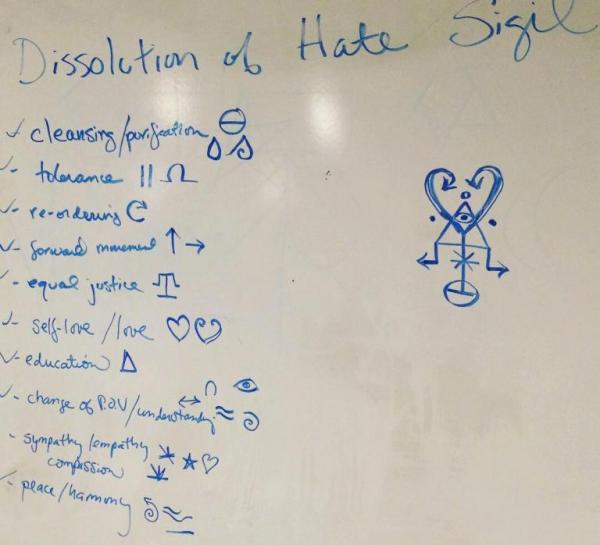 Dissolution of Hate Sigil
✓ cleansing/purification
✓- tolerance
✓- re-ordering
✓- forward movement
✓- equal justice
✓- self-love/love
✓- education
✓- change of P.O.V/understanding
- sympathy/empathy
compassion
✓- peace/harmony